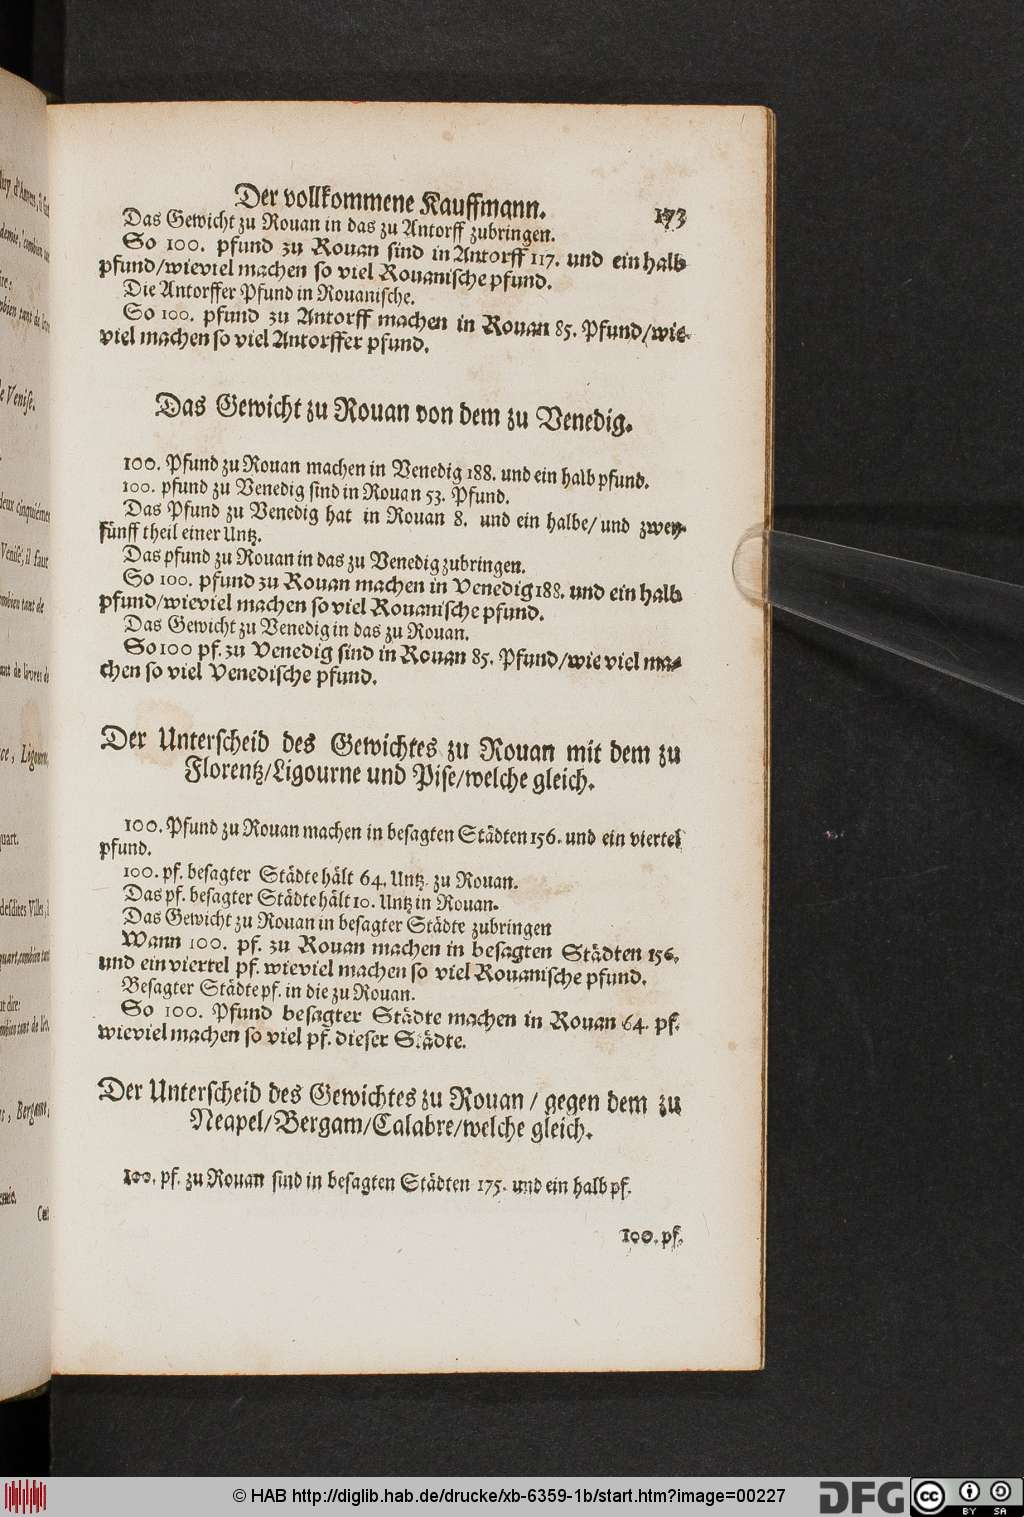 Der vollkommene Kauffmann. 173
Das Gewicht zu Rouan in das zu Antorff zubringen.
So 100. pfund zu Rouan sind in Antorff 117. und ein halb
pfund/wieviel machen so viel Rouanische pfund.
Die Antorffer Pfund in Rouanische.
So 100. pfund zu Antorff machen in Rouan 85. Pfund/wie-
viel machen so viel Antorffer pfund.
Das Gewicht zu Rouan von dem zu Venedig.
100. Pfund zu Rouan machen in Venedig 188. und ein halb pfund.
100. pfund zu Venedig sind in Rouan 53. Pfund.
Das Pfund zu Venedig hat in Rouan 8. und ein halbe/ und zwey-
fünff theil einer Untz.
Das pfund zu Rouan in das zu Venedig zubringen.
So 100. pfund zu Rouan machen in Venedig 188. und ein halb
pfund/wieviel machen so viel Rouanische pfund.
Das Gewicht zu Venedig in das zu Rouan.
So 100 pf. zu Venedig sind in Rouan 85. Pfund/wie viel ma-
chen so viel Venedische pfund.
Der Unterscheid des Gewichtes zu Rouan mit dem zu
Florentz/Ligourne und Pise/welche gleich.
100. Pfund zu Rouan machen in besagten Städten 156. und ein viertel
pfund.
100. pf. besagter Städte hält 64. Untz. zu Rouan.
Das pf. besagter Städte hält 10. Untz in Rouan.
Das Gewicht zu Rouan in besagter Städte zubringen
Wann 100. pf. zu Rouan machen in besagten Städten 156.
und ein viertel pf. wieviel machen so viel Rouanische pfund.
Besagter Städte pf. in die zu Rouan.
So 100. Pfund besagter Städte machen in Rouan 64. pf.
wieviel machen so viel pf. dieser Städte.
Der Unterscheid des Gewichtes zu Rouan / gegen dem zu
Neapel/Bergam/Calabre/welche gleich.
100. pf. zu Rouan sind in besagten Städten 175. und ein halb pf.
100. pf.
© HAB http://diglib.hab.de/drucke/xb-6359-1b/start.htm?image=00227
DFG
cc BY SA